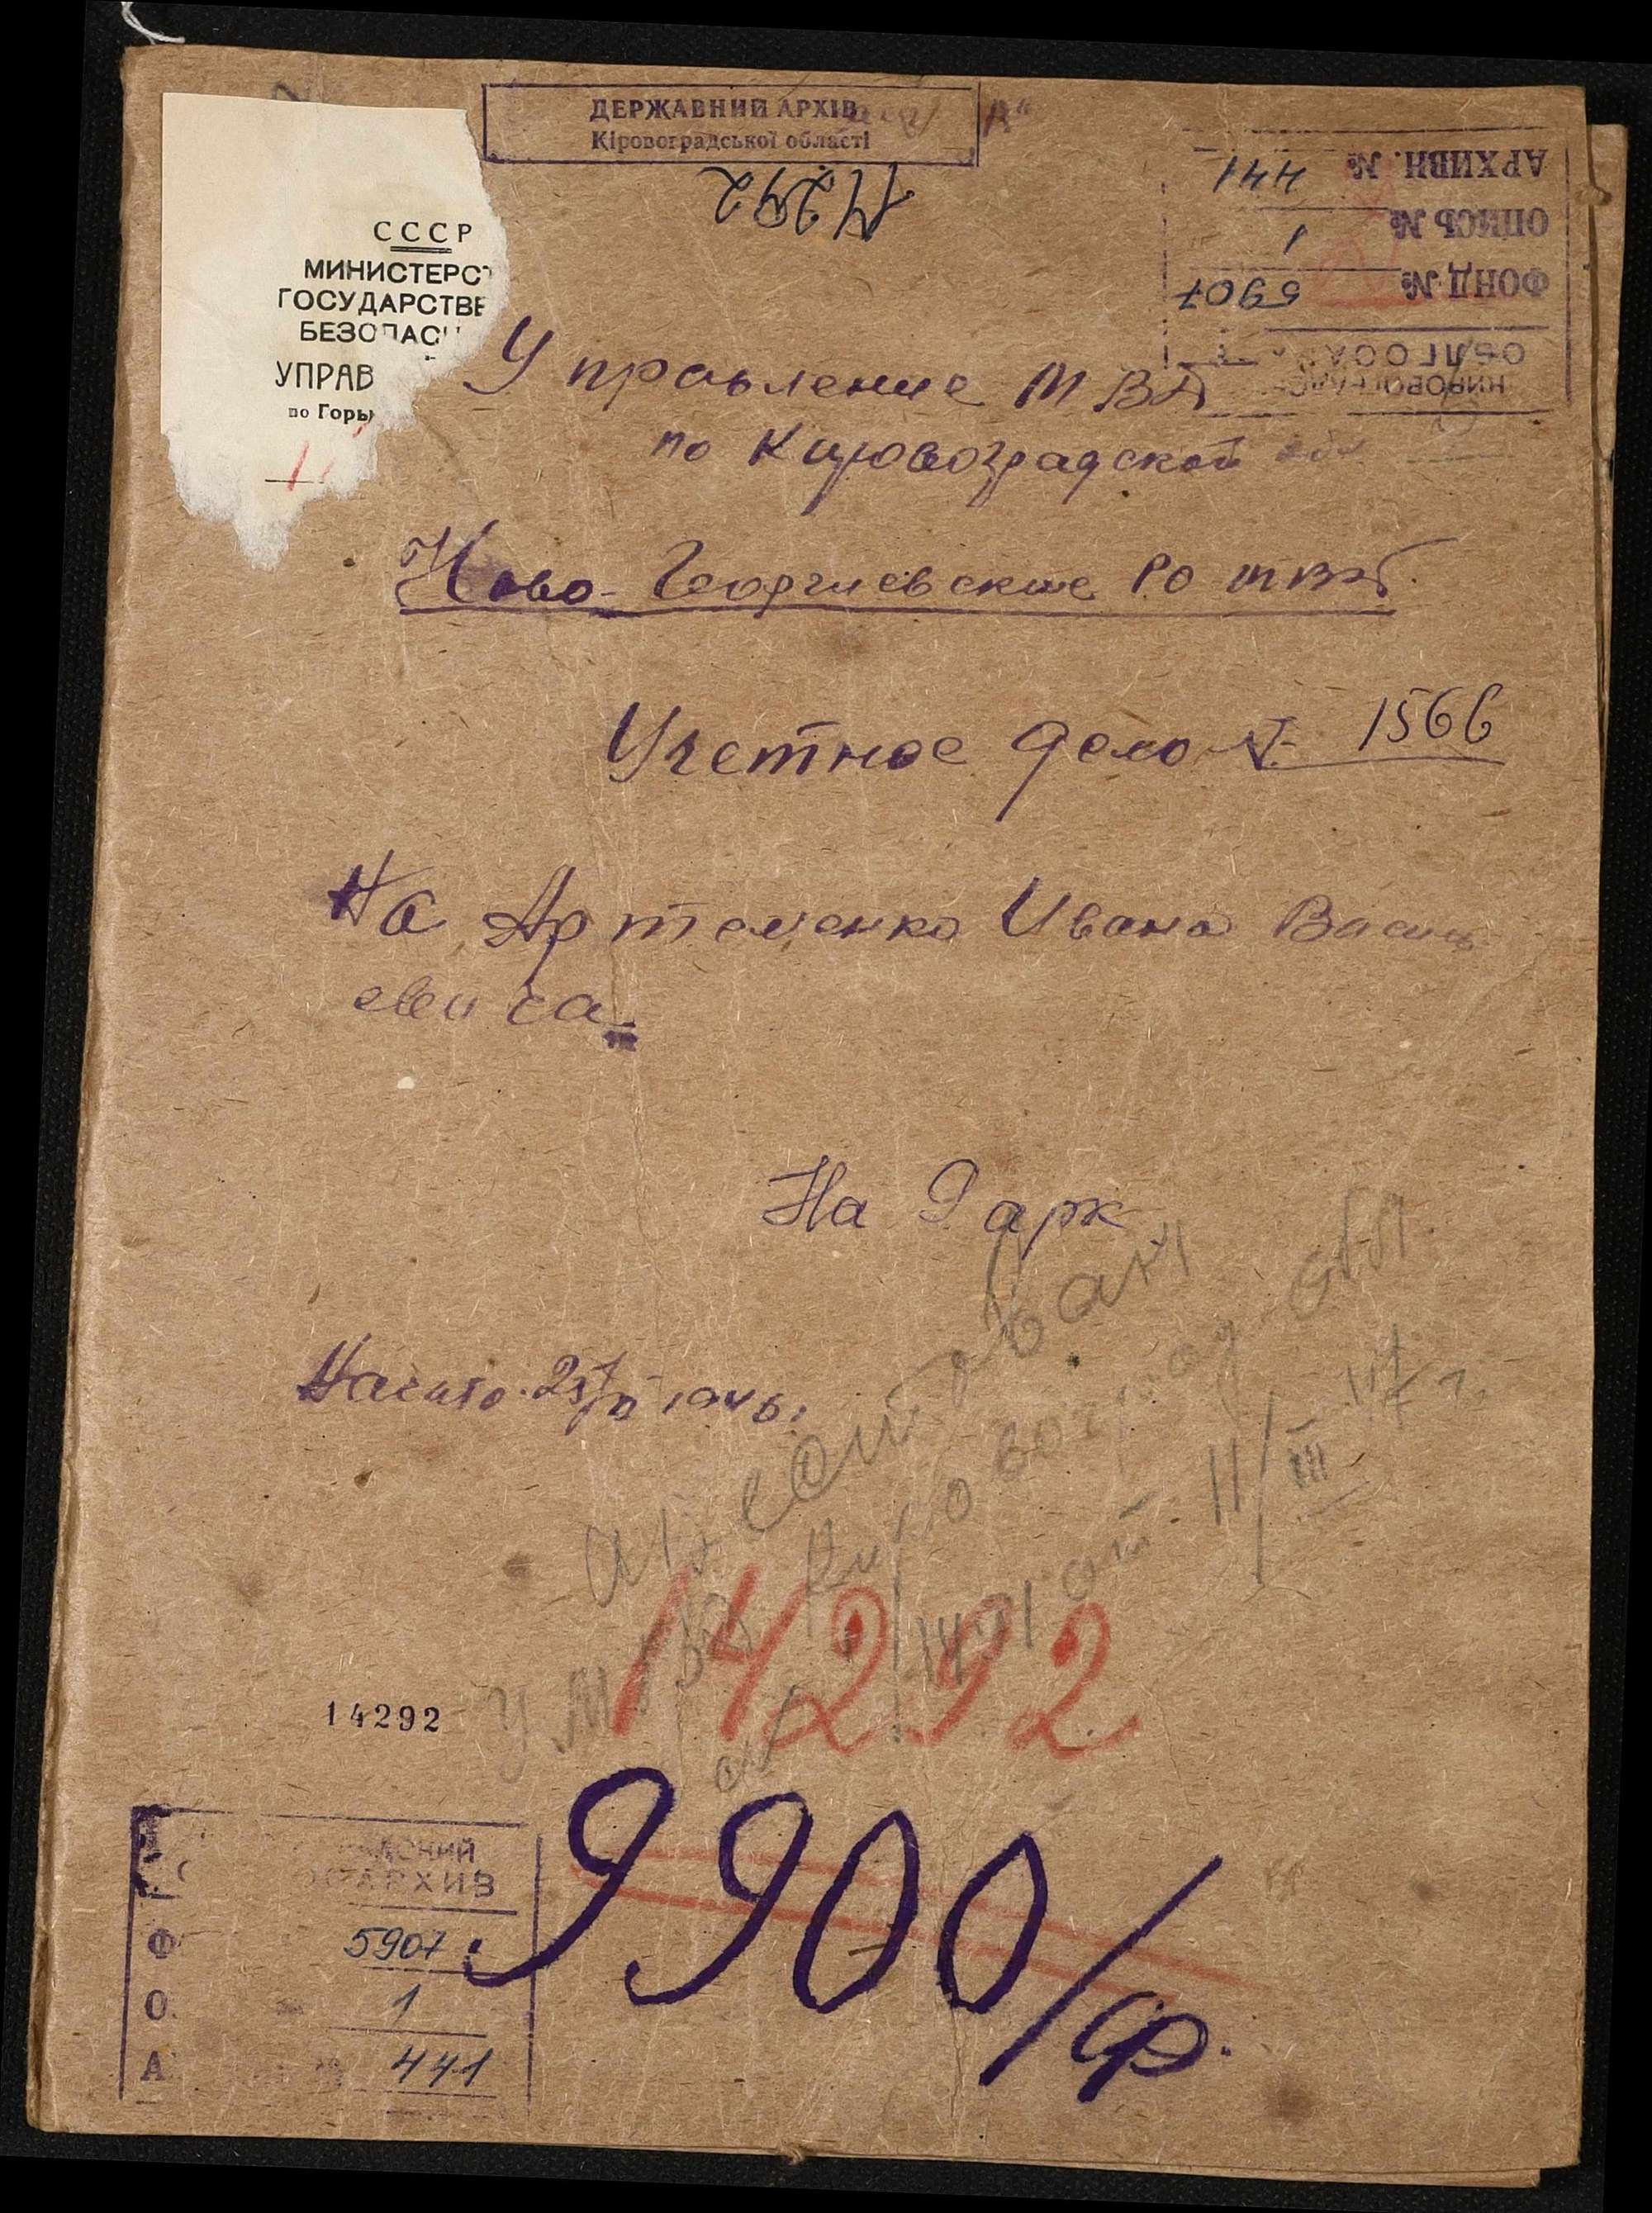 ДЕРЖАВНИЙ АРХІВ
Кіровоградської області
14292
АРХИВН. № 441
ОПИСЬ № 1
ФОНД № 5907
СССР
МИНИСТЕРСТ
ГОСУДАРСТВЕ
БЕЗОПАСН
УПРАВ
по Горь
Управление МВД
по Кировоградской обл
Ново-Георгиевское РО МВД
Учетное дело № 1566
На Артеменко Ивана Василь
евича
На 9 арк
Начато 1946
арестован
УМВД Кировоград обл.
14171 от 11/III 47 г.
14292
14292
9900/ф.
ОСАРХИВ
Ф 5907
О. 1
А 441